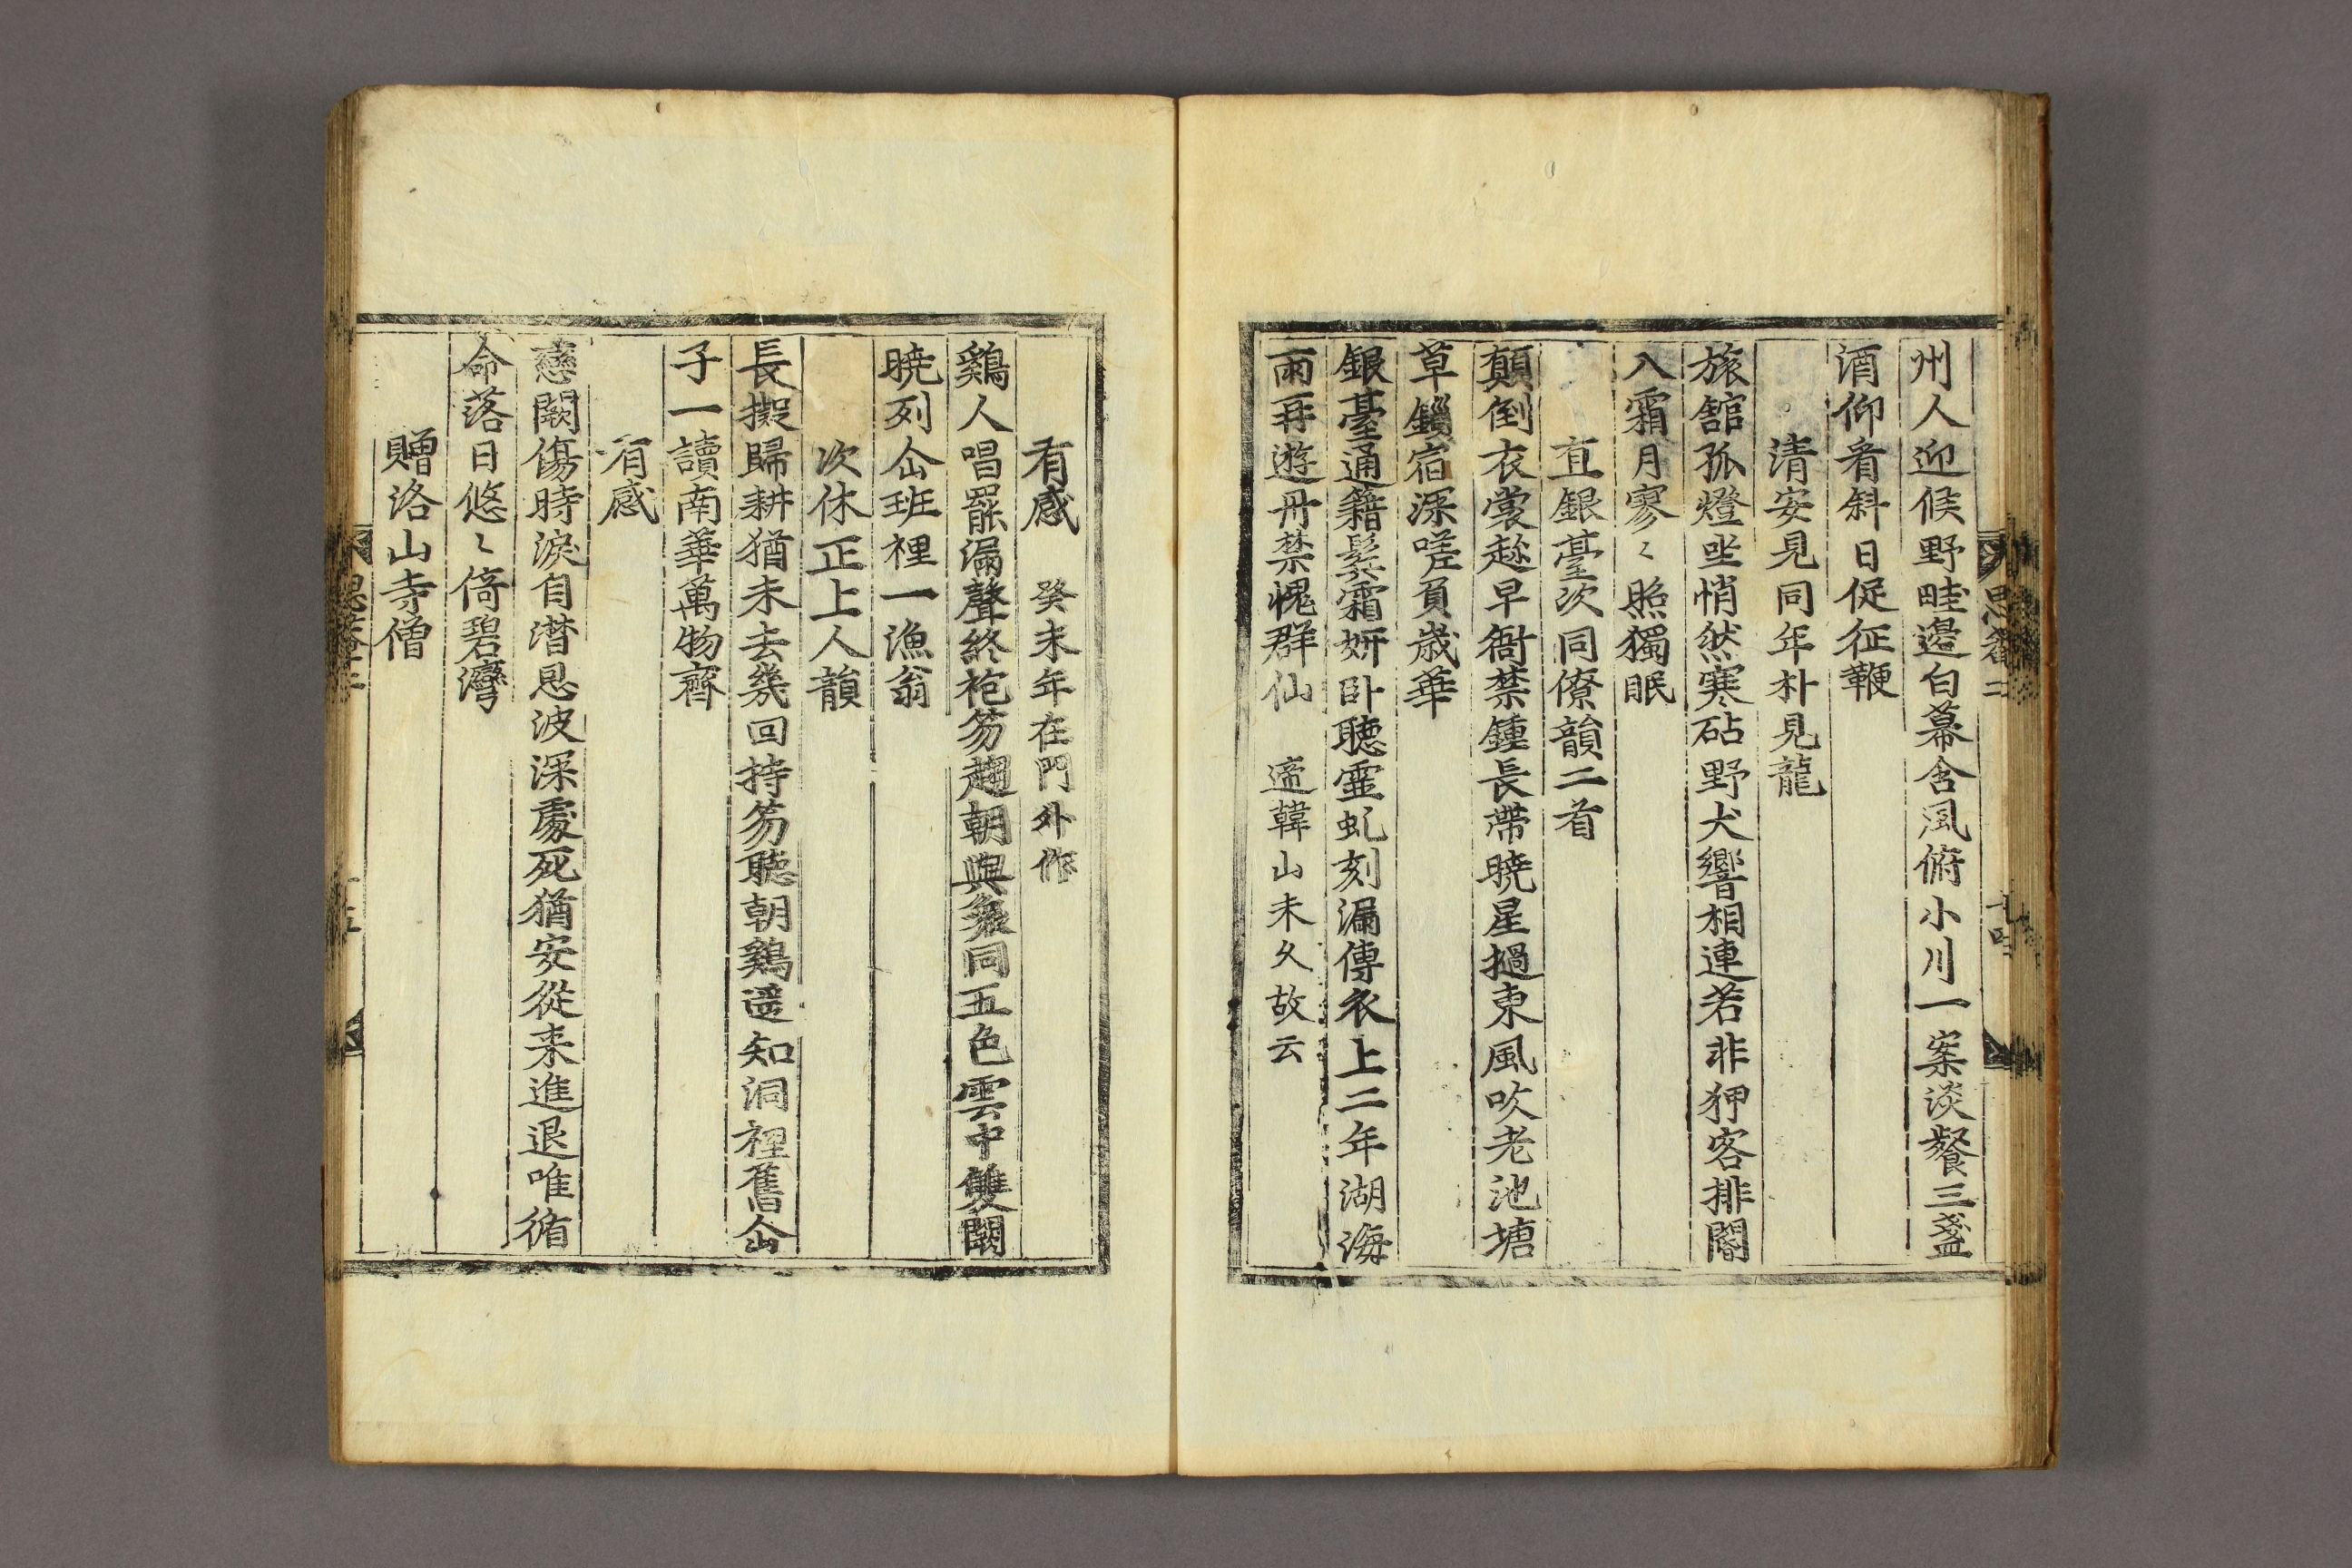 思菴二
十四
州人迎候野畦邊白幕含風俯小川一案淡餐三盞
酒仰看斜日促征鞭
清安見同年朴見龍
旅舘孤燈坐悄然寒砧野犬響相連若非狎客排閣
入霜月寥〻照獨眠
直銀䑓次同僚韻二首
顛倒衣裳趁早衙禁鍾長帶曉星撾東風吹老池塘
草鎖宿深嗟負歲華
銀䑓通籍鬂霜姸卧聽靈虬刻漏傳衣上二年湖海
雨再遊丹禁愧群仙 遞韓山未久故云
有感 癸未年在門外作
鷄人唱罷漏聲終袍笏趨朝與衆同五色雲中雙闕
曉列仚班裡一漁翁
次休正上人韻
長擬歸耕猶未去幾回持笏聽朝鷄遥知洞裡舊仚
子一讀南華萬物齊
有感
戀闕傷時淚自潸恩波深處死猶安從来進退唯循
命落日悠〻倚碧灣
贈洛山寺僧
思菴二
十五